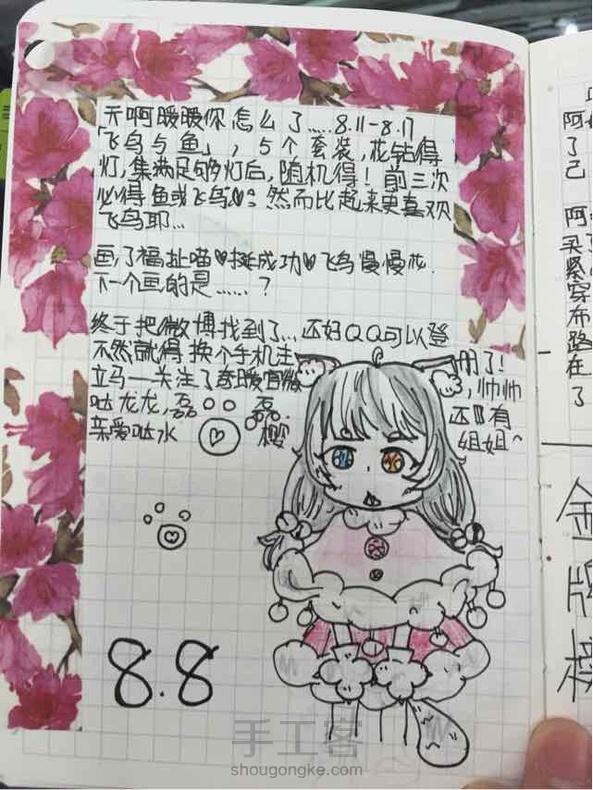 天啊暖暖你怎么了.....8.11-8.17
「飞鸟与鱼」,5个套装,花钻得
灯,集满足够灯后,随机得!前三次
必得鱼或飞鸟。然而比起来更喜欢
飞鸟耶...
画了福祉喵♥挺成功♥飞鸟慢慢花.
下一个画的是......?
终于把微博找到了...还好QQ可以登
不然就得换个手机注册了!
立马一一关注了奇暖官微,帅帅
哒龙龙,磊磊.还有
亲爱哒水樱姐姐~
8.8
阿
了
己
阿
买了
紧
穿
布
路
在
了
金
牌
榜
手工客
shougongke.com